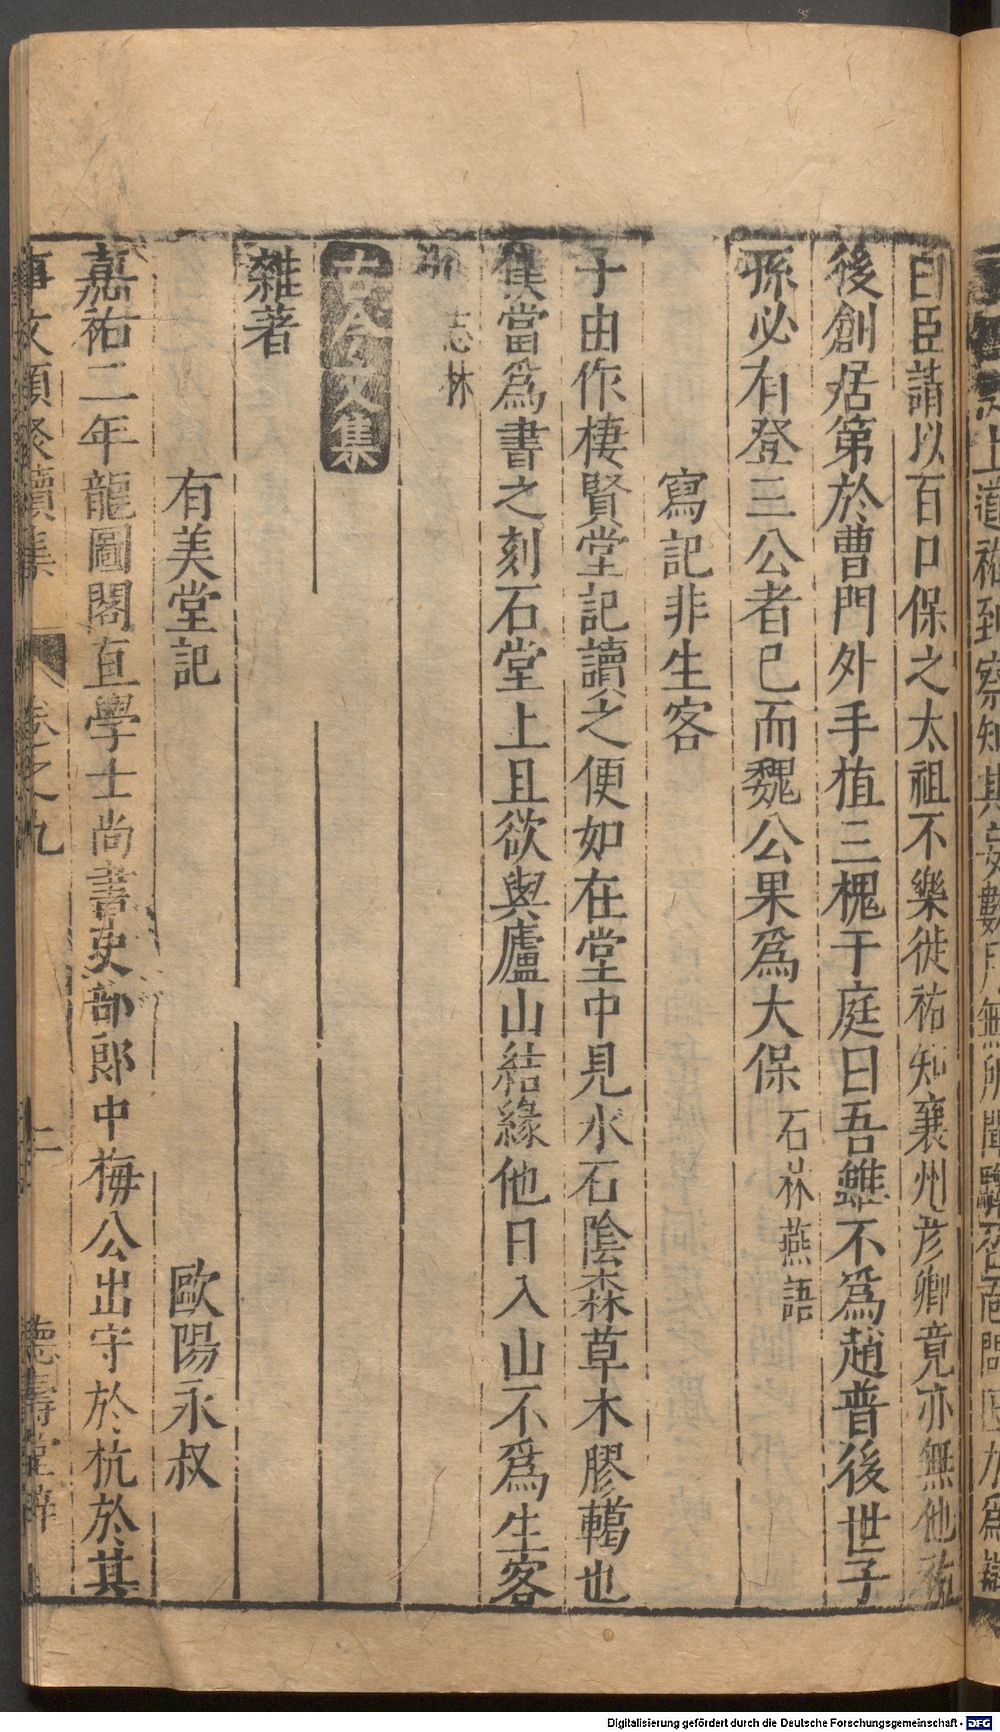 上道祐到察知其妄數月無所聞驛召面問因力爲辯
曰臣請以百口保之太祖不樂徙祐知襄州彥卿竟亦無他祐
後創居第於曹門外手植三槐于庭曰吾雖不爲趙普後世子
孫必有登三公者已而魏公果爲大保 石林燕語
寫記非生客
子由作棲賢堂記讀之便如在堂中見水石陰森草木膠轕也
僕當爲書之刻石堂上且欲與廬山結緣他日入山不爲生客
志林
古今文集
雜著
有美堂記 歐陽永叔
嘉祐二年龍圖閣直學士尚書吏部郎中梅公出守於杭於其
事文類聚續集 卷之九 二 德壽堂梓
Digitalisierung gefördert durch die Deutsche Forschungsgemeinschaft - DFG